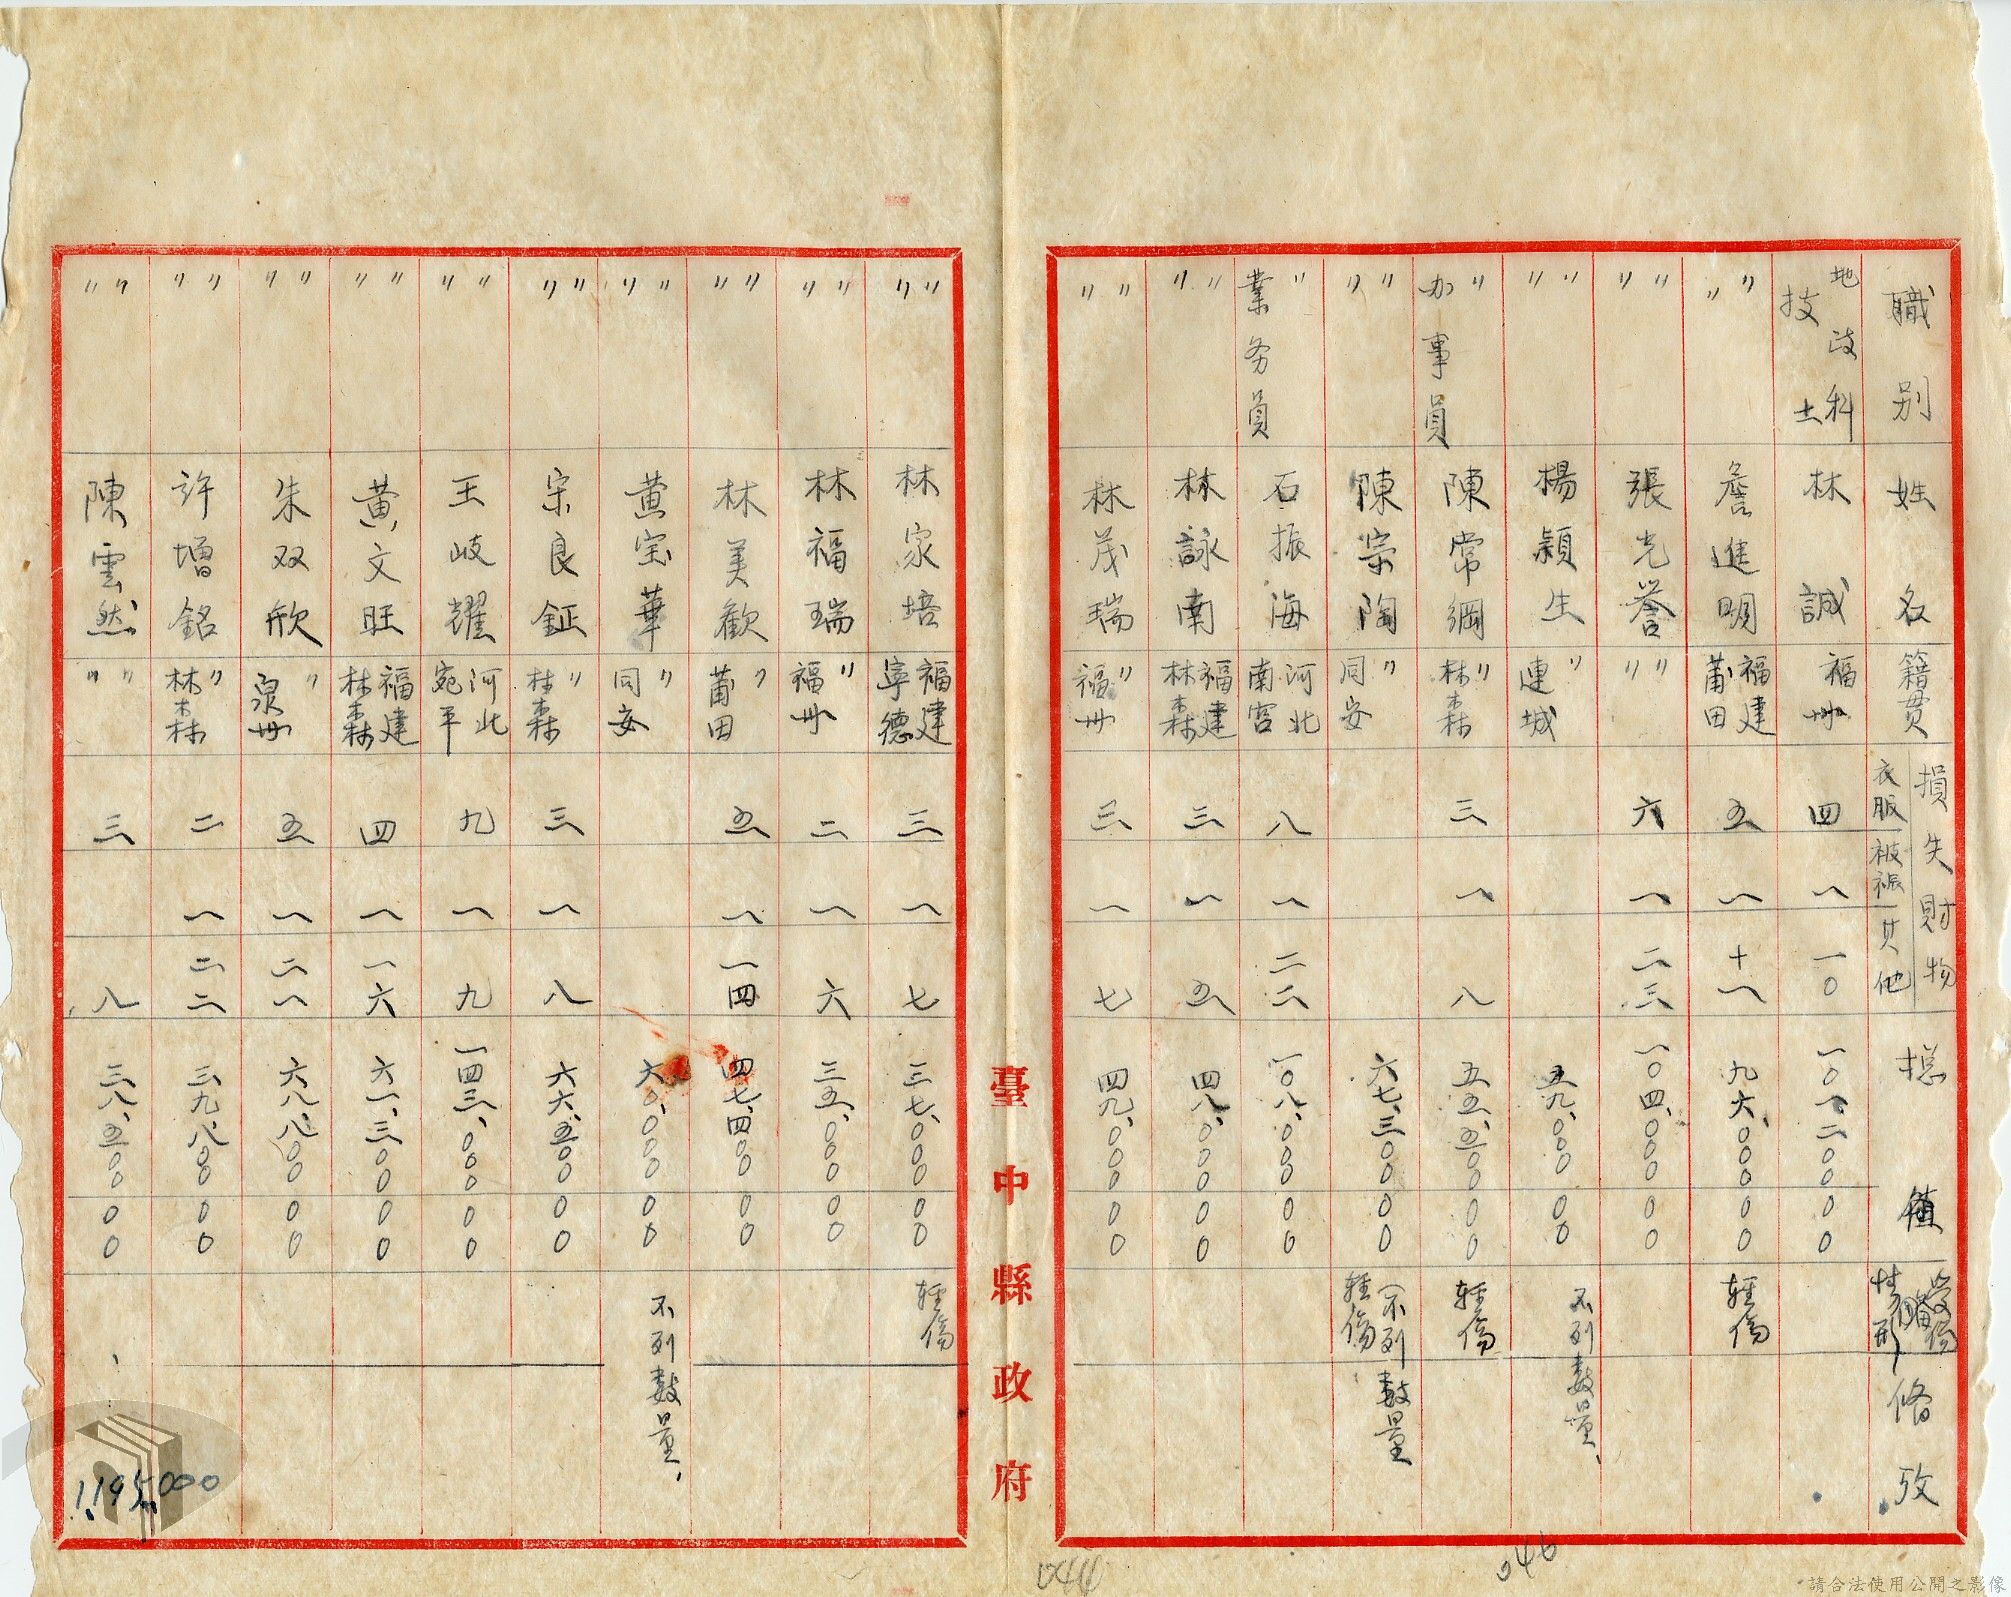 職別 姓名 籍貫 損失財物 衣服 被褥 其他 總值 受傷情形 備攷
地政科技士 林誠 福州 四 一 一〇 一〇一、二〇〇 〇〇
〃〃 詹進明 福建莆田 五 一 十一 九六、〇〇〇 〇〇 輕傷
〃〃 張光譽 〃〃 六 一 二三 一〇四、〇〇〇 〇〇
〃〃 楊穎生 〃連城 五九、〇〇〇 〇〇 不列數量、
〃办事員 陳常綱 〃林森 三 一 八 五五、五〇〇 〇〇 輕傷
〃〃 陳宗陶 〃同安 六七、三〇〇 〇〇 輕傷 (不列數量
〃業务員 石振海 河北南宮 八 一 二二 一〇八、〇〇〇 〇〇
〃〃 林詠南 福建林森 三 一 五 四八、〇〇〇 〇〇
〃〃 林茂瑞 〃福州 三 一 七 四九、〇〇〇 〇〇
臺中縣政府
〃〃 林家培 福建寧德 三 一 七 三七、〇〇〇 〇〇 輕傷
〃〃 林福瑞 〃福州 二 一 六 三五、〇〇〇 〇〇
〃〃 林美歡 〃莆田 五 一 一四 四七、四〇〇 〇〇
〃〃 黄宝華 〃同安 六〇、〇〇〇 〇〇 不列數量、
〃〃 宗良鉦 〃林森 三 一 八 六六、五〇〇 〇〇
〃〃 王岐耀 河北宛平 九 一 九 一四三、〇〇〇 〇〇
〃〃 黄文旺 福建林森 四 一 一六 六一、三〇〇 〇〇
〃〃 朱双欣 〃泉州 五 一 二一 六八、八〇〇 〇〇
〃〃 許增銘 〃林森 二 一 二二 三九、八〇〇 〇〇
〃〃 陳雲然 〃〃 三 八 三八、五〇〇 〇〇
1,195,000
044
046
請合法使用公開之影像